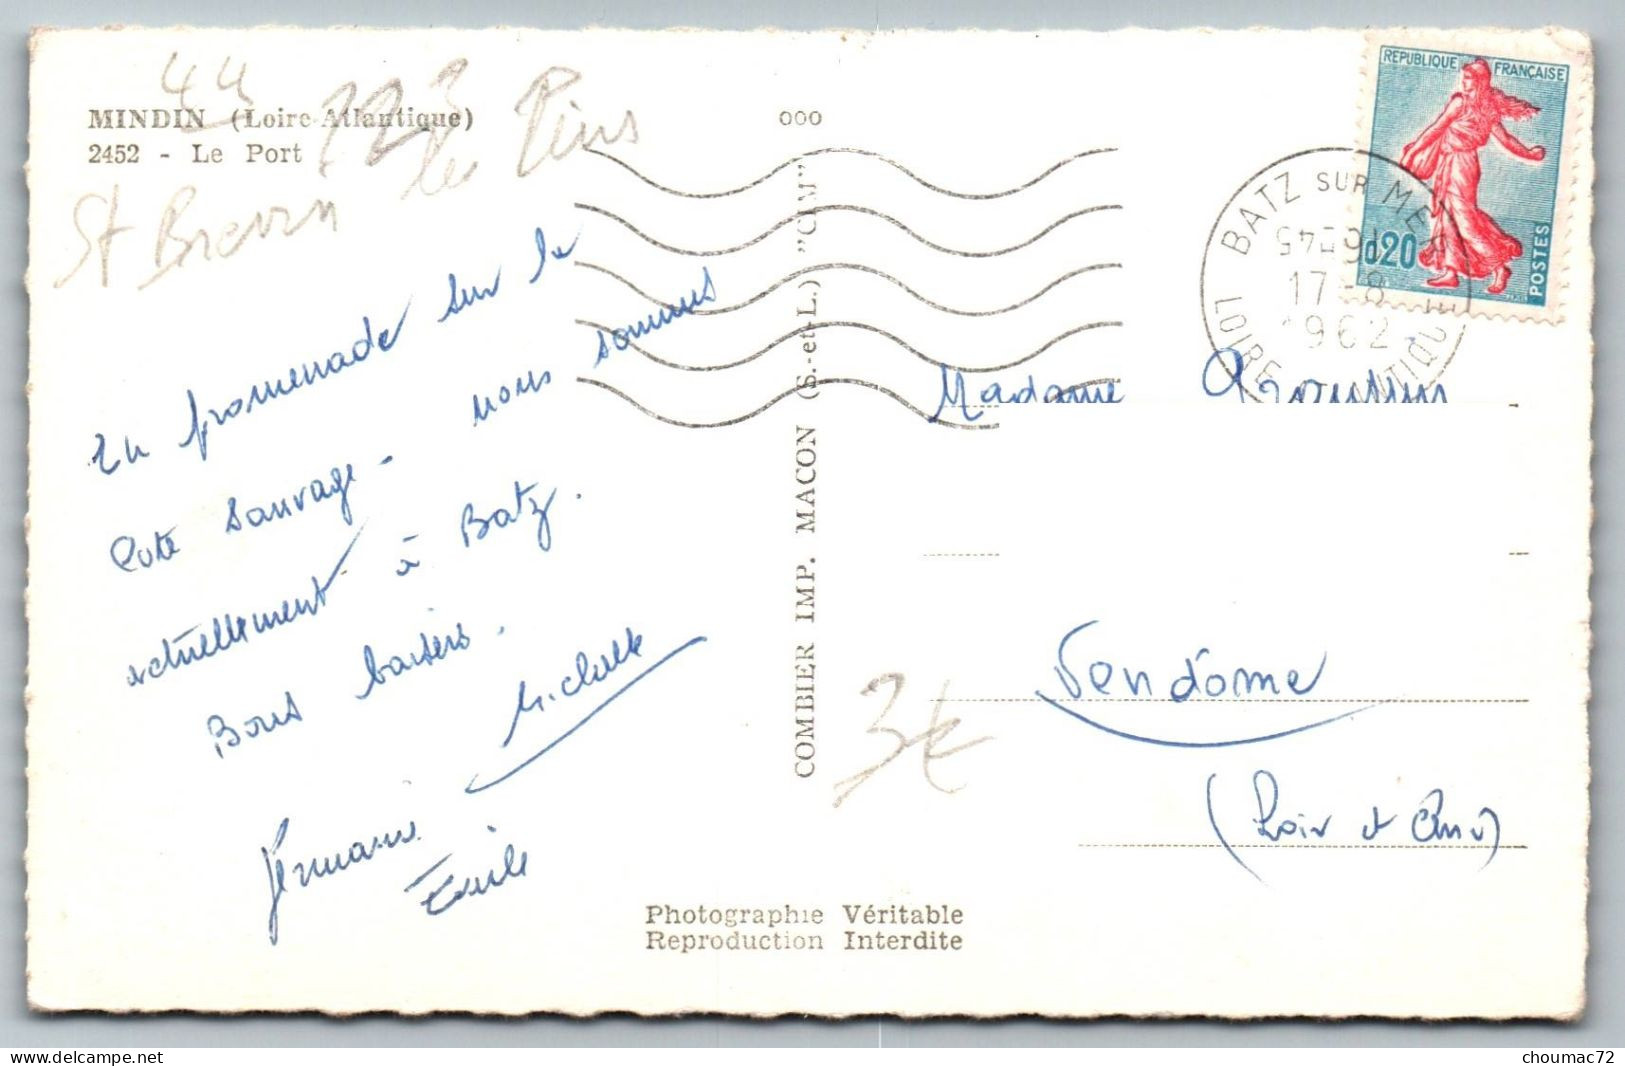 44
MINDIN (Loire-Atlantique)
2452 - Le Port
St Brevin les Pins
000
REPUBLIQUE FRANÇAISE
0,20
POSTES
BATZ SUR MER
17 - 8
1962
LOIRE ATLANTIQUE
En promenade sur la
cote sauvage - nous sommes
actuellement à Batz.
Bons baisers.
Michelle
Germaine
Emile
COMBIER IMP. MACON (S.-et-L.) "CIM"
Madame
Vendôme
(Loir et Cher)
3€
Photographie Véritable
Reproduction Interdite
choumac72